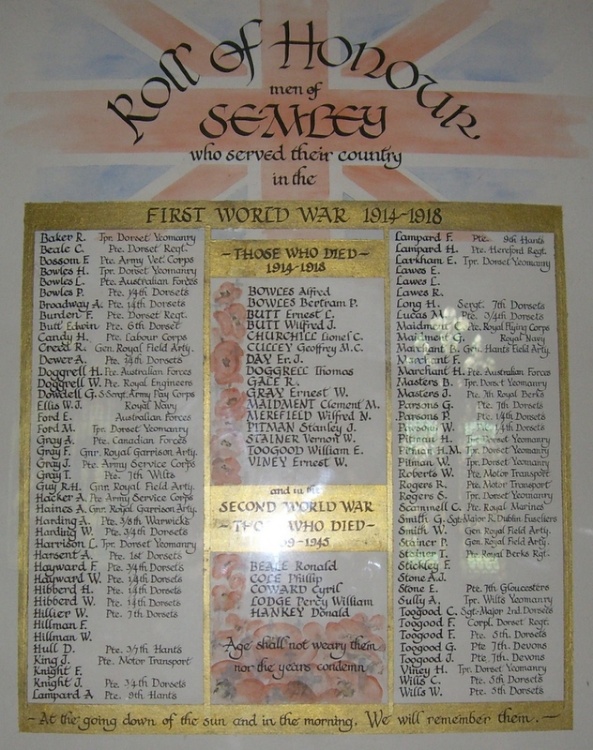 Roll of Honour
men of
SEMLEY
who served their country
in the
FIRST WORLD WAR 1914-1918
Baker R. Tpr. Dorset Yeomanry
Beale C. Pte. Dorset Regt.
Bossom F. Pte. Army Vet. Corps
Bowles H. Tpr. Dorset Yeomanry
Bowles L. Pte. Australian Forces
Bowles P. Pte. 14th Dorsets
Broadway A. Pte. 14th Dorsets
Burden F. Pte. Dorset Regt.
Butt Edwin Pte. 6th Dorset
Candy H. Pte. Labour Corps
Creed R. Gnr. Royal Field Arty.
Dower A. Pte. 14th Dorsets
Doggrell H. Pte. Australian Forces
Doggrell W. Pte. Royal Engineers
Dowdell G. S-Sergt. Army Pay Corps
Ellis W.J. Royal Navy
Ford E. Australian Forces
Ford M. Tpr. Dorset Yeomanry
Gray A. Pte. Canadian Forces
Gray F. Gnr. Royal Garrison Arty.
Gray J. Pte. Army Service Corps
Gray T. Pte. 7th Wilts
Guy R.H. Gnr. Royal Field Arty.
Hacker A. Pte. Army Service Corps
Haines A. Gnr. Royal Garrison Arty.
Harding A. Pte. 3/8th Warwicks
Harding W. Pte. 3/4th Dorsets
Harrison L. Tpr. Dorset Yeomanry
Harsent A. Pte. 1st Dorsets
Hayward F. Pte. 3/4th Dorsets
Hayward W. Pte. 14th Dorsets
Hibberd H. Pte. 14th Dorsets
Hibberd W. Pte. 14th Dorsets
Hillier W. Pte. 7th Dorsets
Hillman F.
Hillman W.
Hull D. Pte. 3/7th Hants
King J. Pte. Motor Transport
Knight F.
Knight J. Pte. 3/4th Dorsets
Lampard A Pte. 9th Hants
~ THOSE WHO DIED ~
1914-1918
BOWLES Alfred
BOWLES Bertram P.
BUTT Ernest L.
BUTT Wilfred J.
CHURCHILL Lionel C.
CULLEY Geoffrey M.C.
DAY Er. J.
DOGGRELL Thomas
GALE R.
GRAY Ernest W.
MAIDMENT Clement M.
MEREFIELD Wilfred N.
PITMAN Stanley J.
STAINER Vernon W.
TOOGOOD William E.
VINEY Ernest W.
and in the
SECOND WORLD WAR
WHO DIED ~
-1945
BEALE Ronald
COLE Phillip
COWARD Cyril
LODGE Percy William
HANKEY Donald
Age shall not weary them
nor the years condemn
Lampard F. Pte. 9th Hants
Lampard H. Pte. Hereford Regt.
Larkham E. Tpr. Dorset Yeomanry
Lawes E.
Lawes L.
Lawes R.
Long H. Sergt. 7th Dorsets
Lucas M. Pte. 3/4th Dorsets
Maidment C. Pte. Royal Flying Corps
Maidment G. Royal Navy
Marchant B. Gnr. Hants Field Arty.
Marchant F.
Marchant H. Pte. Australian Forces
Masters B. Tpr. Dorset Yeomanry
Masters J. Pte. 7th Royal Berks
Parsons G. Pte. 7th Dorsets
Parsons P. Pte. 14th Dorsets
Parsons W. Pte. 14th Dorsets
Pitman H. Tpr. Dorset Yeomanry
Pitman H.M. Tpr. Dorset Yeomanry
Pitman W. Tpr. Dorset Yeomanry
Roberts W. Pte. Motor Transport
Rogers R. Pte. Motor Transport
Rogers S. Tpr. Dorset Yeomanry
Scammell C. Pte. Royal Marines
Smith G. Sgt-Major R. Dublin Fusiliers
Smith W. Gnr. Royal Field Arty.
Stainer P. Gnr. Royal Field Arty.
Stainer T. Pte. Royal Berks Rgt.
Stickley F.
Stone A.J.
Stone E. Pte. 7th Gloucesters
Sully A. Tpr. Wilts Yeomanry
Toogood C. Sgt-Major 2nd Dorsets
Toogood F. Corpl. Dorset Regt.
Toogood F. Pte. 5th Dorsets
Toogood G. Pte. 7th Devons
Toogood J. Pte. 7th Devons
Viney H. Tpr. Dorset Yeomanry
Wills C. Pte. 5th Dorsets
Wills W. Pte. 5th Dorsets
~ At the going down of the sun and in the morning. We will remember them. ~